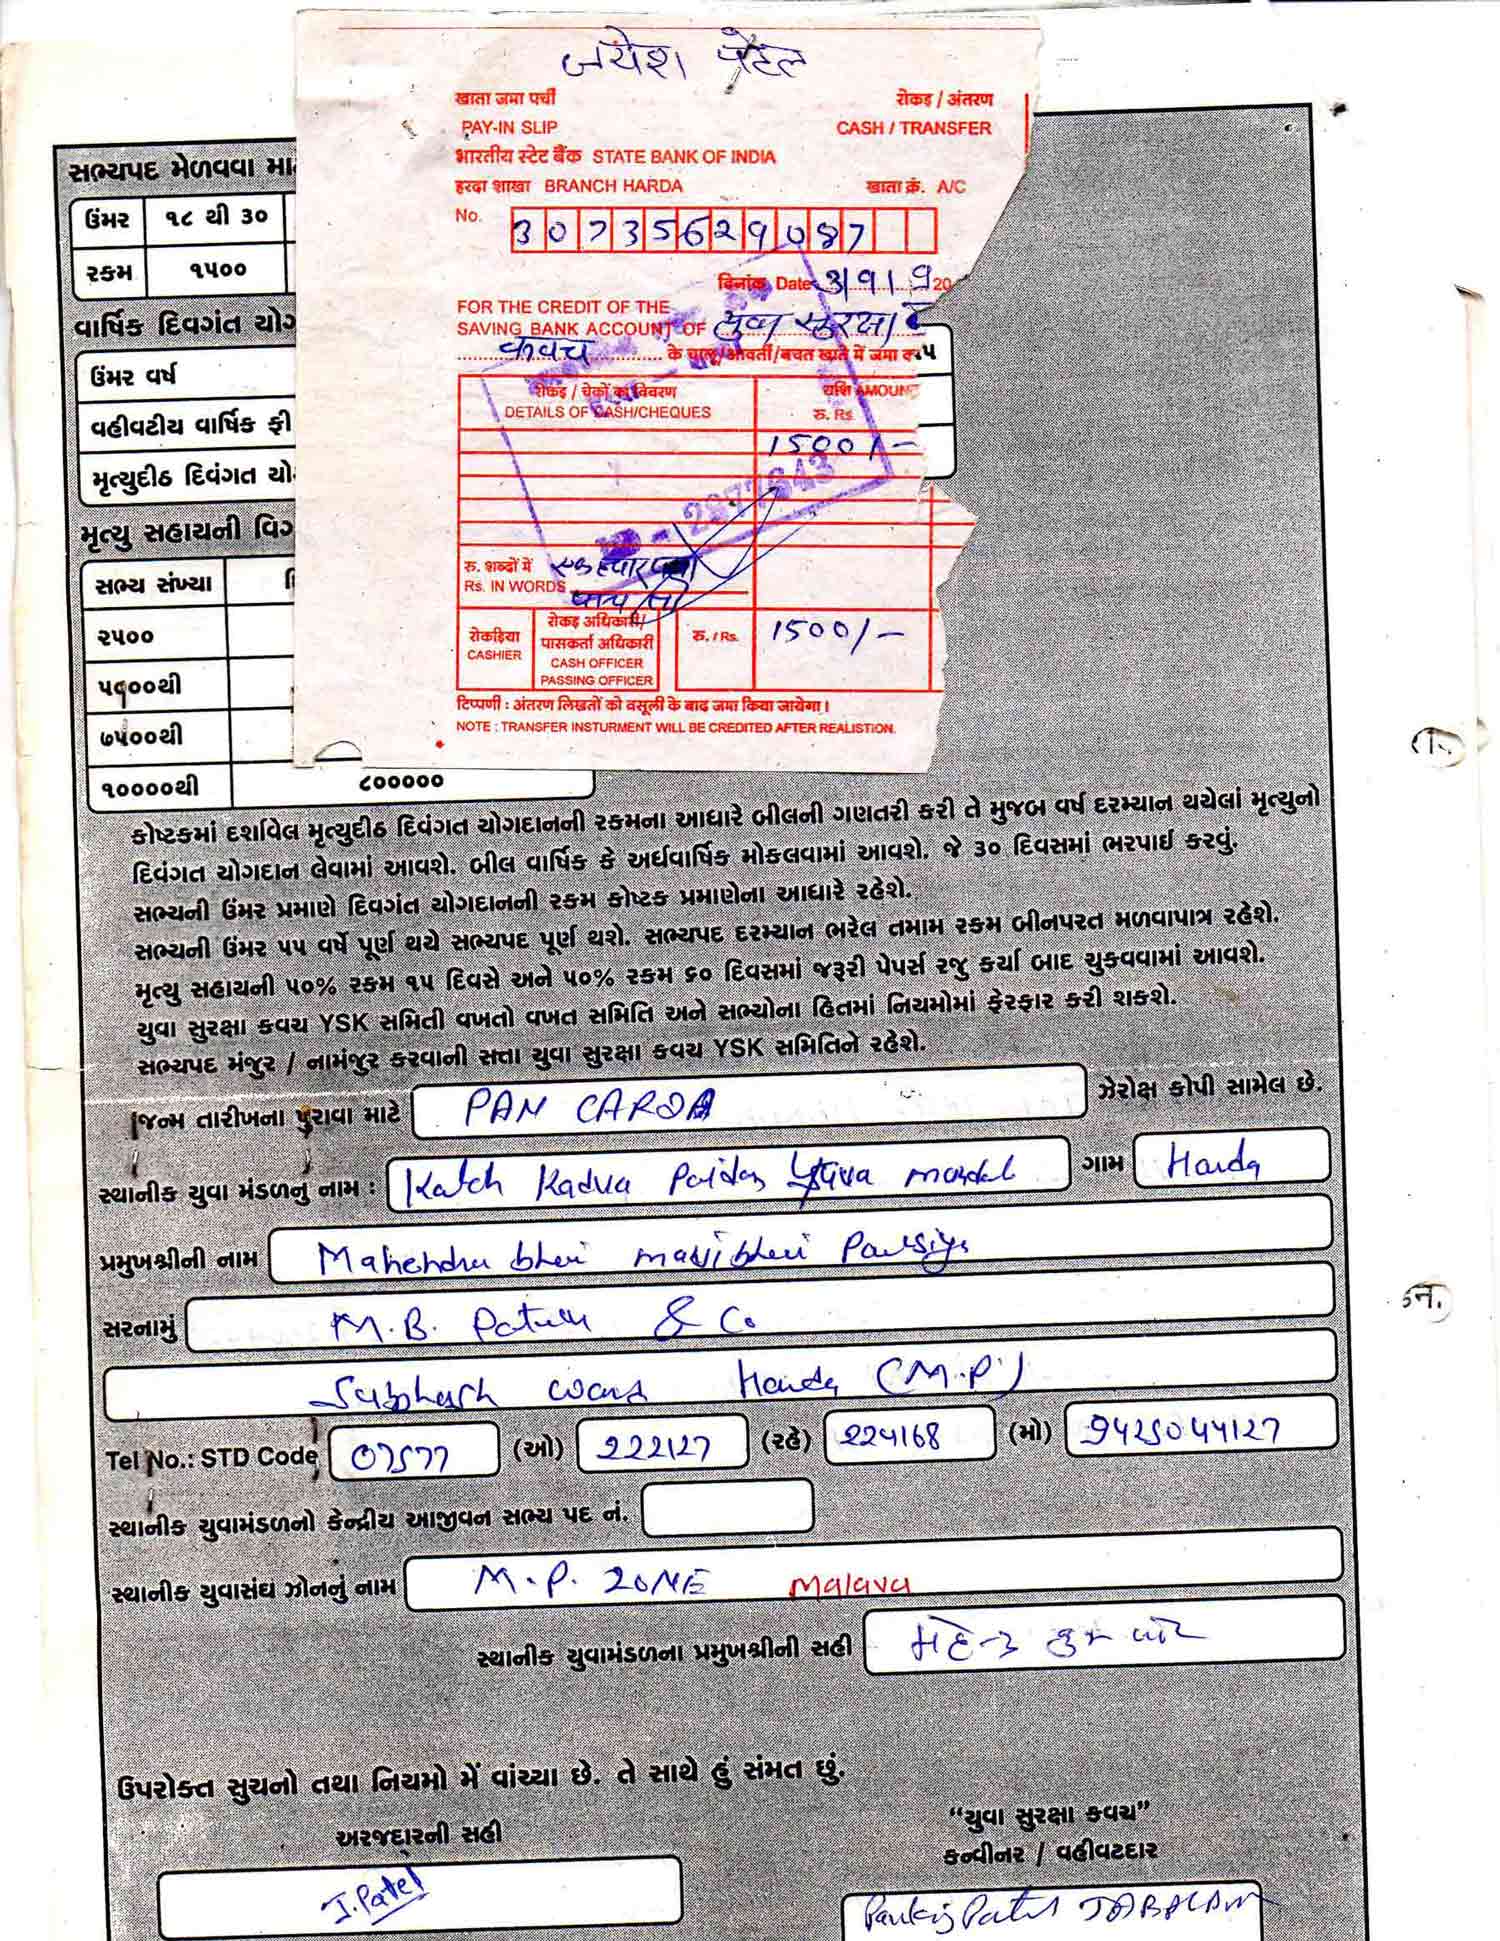 जयेश पटेल
खाता जमा पर्ची रोकड़ / अंतरण
PAY-IN SLIP CASH / TRANSFER
भारतीय स्टेट बैंक STATE BANK OF INDIA
हरदा शाखा BRANCH HARDA खाता क्रं. A/C
No. 30735629087
दिनांक Date 3/9/9 20
FOR THE CREDIT OF THE
SAVING BANK ACCOUNT OF युवा सुरक्षा
कवच के चालू/आवर्ती/बचत खाते में जमा
रोकड़ / चेकों का विवरण राशि AMOUNT
DETAILS OF CASH/CHEQUES रु. Rs.
1500/-
2977643
रु. शब्दों में एक हजार
Rs. IN WORDS
रोकड़िया
CASHIER
रोकड़ अधिकारी/
पासकर्ता अधिकारी
CASH OFFICER
PASSING OFFICER
रु. / Rs. 1500/-
टिप्पणी : अंतरण लिखतों को वसूली के बाद जमा किया जायेगा।
NOTE : TRANSFER INSTURMENT WILL BE CREDITED AFTER REALISTION.
સભ્યપદ મેળવવા
ઉંમર ૧૮ થી ૩૦
રકમ ૧૫૦૦
વાર્ષિક દિવગંત
ઉંમર વર્ષ
વહીવટીય વાર્ષિક ફી
મૃત્યુદીઠ દિવંગત
મૃત્યુ સહાયની
સભ્ય સંખ્યા
૨૫૦૦
૫૧૦૦થી
૭૫૦૦થી
૧૦૦૦૦થી ૮૦૦૦૦૦
કોષ્ટકમાં દર્શાવેલ મૃત્યુદીઠ દિવંગત યોગદાનની રકમના આધારે બીલની ગણતરી કરી તે મુજબ વર્ષ દરમ્યાન થયેલાં મૃત્યુનો
દિવંગત યોગદાન લેવામાં આવશે. બીલ વાર્ષિક કે અર્ધવાર્ષિક મોકલવામાં આવશે. જે ૩૦ દિવસમાં ભરપાઈ કરવું.
સભ્યની ઉંમર પ્રમાણે દિવગંત યોગદાનની રકમ કોષ્ટક પ્રમાણેના આધારે રહેશે.
સભ્યની ઉંમર ૫૫ વર્ષે પૂર્ણ થયે સભ્યપદ પૂર્ણ થશે. સભ્યપદ દરમ્યાન ભરેલ તમામ રકમ બીનપરત મળવાપાત્ર રહેશે.
મૃત્યુ સહાયની ૫૦% રકમ ૧૫ દિવસે અને ૫૦% રકમ ૬૦ દિવસમાં જરૂરી પેપર્સ રજુ કર્યા બાદ ચુકવવામાં આવશે.
યુવા સુરક્ષા કવચ YSK સમિતી વખતો વખત સમિતિ અને સભ્યોના હિતમાં નિયમોમાં ફેરફાર કરી શકશે.
સભ્યપદ મંજુર / નામંજુર કરવાની સત્તા યુવા સુરક્ષા કવચ YSK સમિતિને રહેશે.
જન્મ તારીખના પુરાવા માટે PAN CARD ઝેરોક્ષ કોપી સામેલ છે.
સ્થાનીક યુવા મંડળનું નામ : Katch Kadva Patidar Yuva mandal ગામ Harda
પ્રમુખશ્રીની નામ Mahendra bhai mavjibhai Parsiya
સરનામું M.B. Patel & Co
Subhash ward Harda (M.P)
Tel No.: STD Code 07577 (ઓ) 222127 (રહે) 224168 (મો) 9425044127
સ્થાનીક યુવામંડળનો કેન્દ્રીય આજીવન સભ્ય પદ નં.
સ્થાનીક યુવાસંઘ ઝોનનું નામ M.P. ZONE Malava
સ્થાનીક યુવામંડળના પ્રમુખશ્રીની સહી
ઉપરોક્ત સુચનો તથા નિયમો મેં વાંચ્યા છે. તે સાથે હું સંમત છું.
અરજદારની સહી
J. Patel
“યુવા સુરક્ષા કવચ”
કન્વીનર / વહીવટદાર
Pankaj Patel